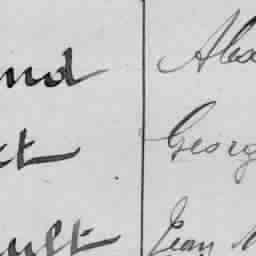 nd Alex
ct Georg
ult Jean